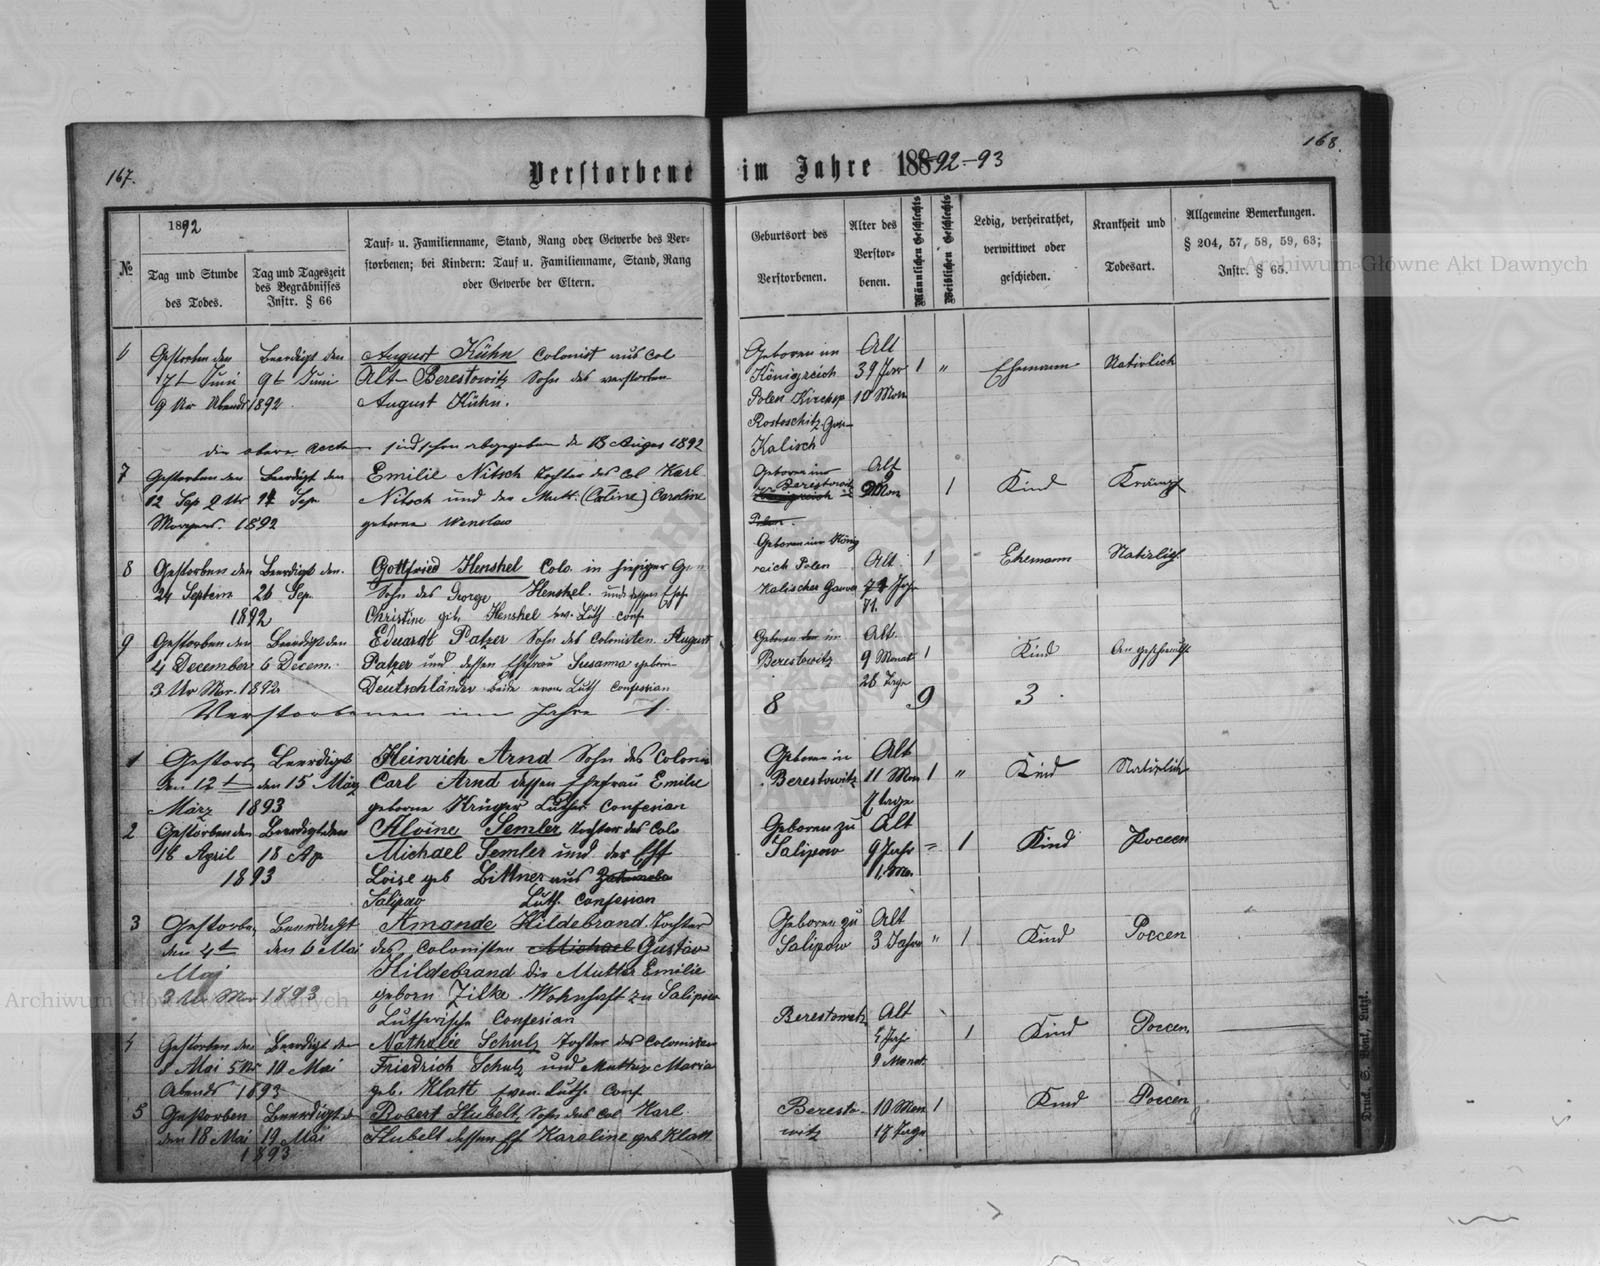 167.
168.
Verstorbene im Jahre 188 92-93
1892
№
Tag und Stunde
des Todes.
Tag und Tageszeit
des Begräbnisses
Instr. § 66
Tauf= u. Familienname, Stand, Rang oder Gewerbe des Ver=
storbenen; bei Kindern: Tauf u. Familienname, Stand, Rang
oder Gewerbe der Eltern.
Geburtsort des
Verstorbenen.
Alter des
Verstor=
benen.
Männlichen Geschlechts
Weiblichen Geschlechts
Ledig, verheirathet,
verwittwet oder
geschieden.
Krankheit und
Todesart.
Allgemeine Bemerkungen.
§ 204, 57, 58, 59, 63;
Instr. § 65.
6
Gestorben den
17t Juni
9 Ur Abends
Beerdigt den
9t Juni
1892
August Kühn Colonist aus Col
Alt-Berestowitz Sohn des verstorben
August Kühn.
Geboren im
Königreich
Polen Kirchsp
Kalisch
Alt
39 Jar
10 Mon
1 "
Ehemann
Natirlich
sind schon abgegeben d 13 Auges 1892
7
Gestorben den
12 Sep 2 Ur
Morgens. 1892
Beerdigt den
14 Sep
Emilie Nitsch tochter des Col Karl
Nitsch und der Mutt: (Coline) Caroline
geborne Wenslaw
Geboren im
Berestowitz
Königreich
Polen.
Alt
9 Mon
1
Kind
Krämpf
8
Gestorben den
24 Septem
1892
Beerdigt den.
26 Sep.
Gottfried Henshel Colo. in hiesiger Gem
Sohn des George Henshel. und dessen Ehef
Christine geb Henshel ev. Luth conf.
Geboren im König
reich Polen
Kalischer Gouver
Alt
74 Jahr
71.
1
Ehemann
Natirligh
9
Gestorben den
4 December
3 Ur Mor. 1892
Beerdigt den
6 Decem.
Eduardt Patzer Sohn des Colonisten. August
Patzer und dessen Ehefrau Susanna geborn
Deutschländer beide evan Luth Confessian
Geboren den im
Berestowitz
Alt.
9 Monat
28 Tage
1
Kind
An geschwulst
Verstorbenen im Jahre 1 8 9 3.
1
Gestorb
den 12t
März 1893
Beerdigt
den 15 März
Heinrich Arnd Sohn des Colonis
Carl Arnd dessen Ehefrau Emilie
geborne Krüger Luther Confesian
Geboren in
Berestowitz
Alt
11 Mon
7 tage
1 "
Kind
Natirlich
2
Gestorben den
16 April
1893
Beerdigt den
18 Ap
Alvine Semler tochter des Colo
Michael Semler und der Eff
Loise geb Bittner aus
Salipao Luth. Confesian
Geboren zu
Salipow
Alt
9 Jahr
1
Kind
Poccen
3
Gestorbe
den 4t
Mai
3 Ur Mor 1893
Beerdicht
den 6 Mai
Amande Hildebrand. Tochter
des Colonisten Michael Gustav
Hildebrand die Mutter Emilie
geborn Zilke. Wohnhaft zu Salipow
Lutherische Confesian
Geboren zu
Salipow
Alt
3 Jahre
" 1
Kind
Poccen
4
Gestorben den
8 Mai 5 Ur
Abends 1893
Beerdigt den
10 Mai
Nathalie Schulz Tochter des Colonisten
Friedrich Schulz und Mutter Maria
geb. Klatt. evan. Luth. Conf
Berestowetz
Alt
Jahr
9 Monat
1
Kind
Poccen
5
Gestorben
den 18 Mai
1893
Beerdigt d
19 Mai
Robert Stubelt, Sohn des Col Karl
Stubelt dessen Ef Karaline geb Klatt
Beresto-
witz
10 Mon
18 Tage
1
Kind
Poccen
Archiwum Główne Akt Dawnych
Archiwum Główne Akt Dawnych